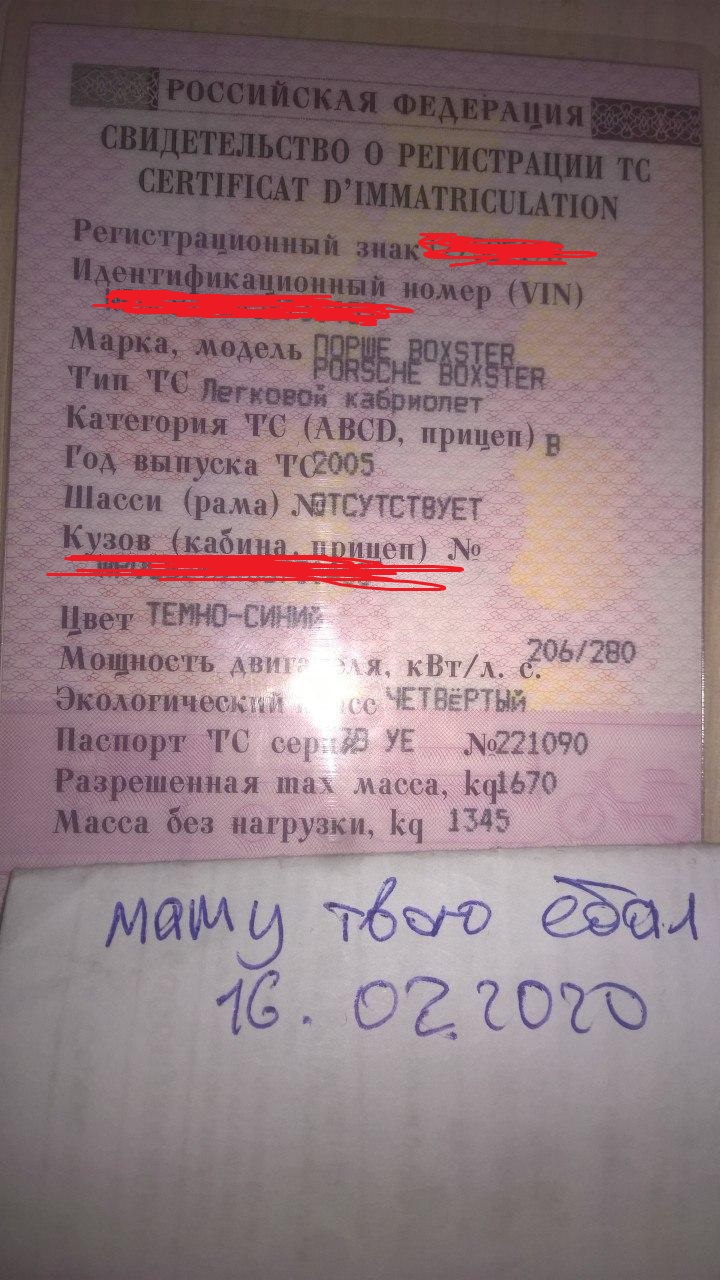 РОССИЙСКАЯ ФЕДЕРАЦИЯ
СВИДЕТЕЛЬСТВО О РЕГИСТРАЦИИ ТС
CERTIFICAT D'IMMATRICULATION
Регистрационный знак
Идентификационный номер (VIN)
Марка, модель ПОРШЕ BOXSTER
PORSCHE BOXSTER
Тип ТС Легковой кабриолет
Категория ТС (ABCD, прицеп) B
Год выпуска ТС 2005
Шасси (рама) № ОТСУТСТВУЕТ
Кузов (кабина, прицеп) №
Цвет ТЕМНО-СИНИЙ
Мощность двигателя, кВт/л. с. 206/280
Экологический класс ЧЕТВЁРТЫЙ
Паспорт ТС серия УЕ №221090
Разрешенная max масса, kg 1670
Масса без нагрузки, kg 1345
мать твою ебал
16.02.2020